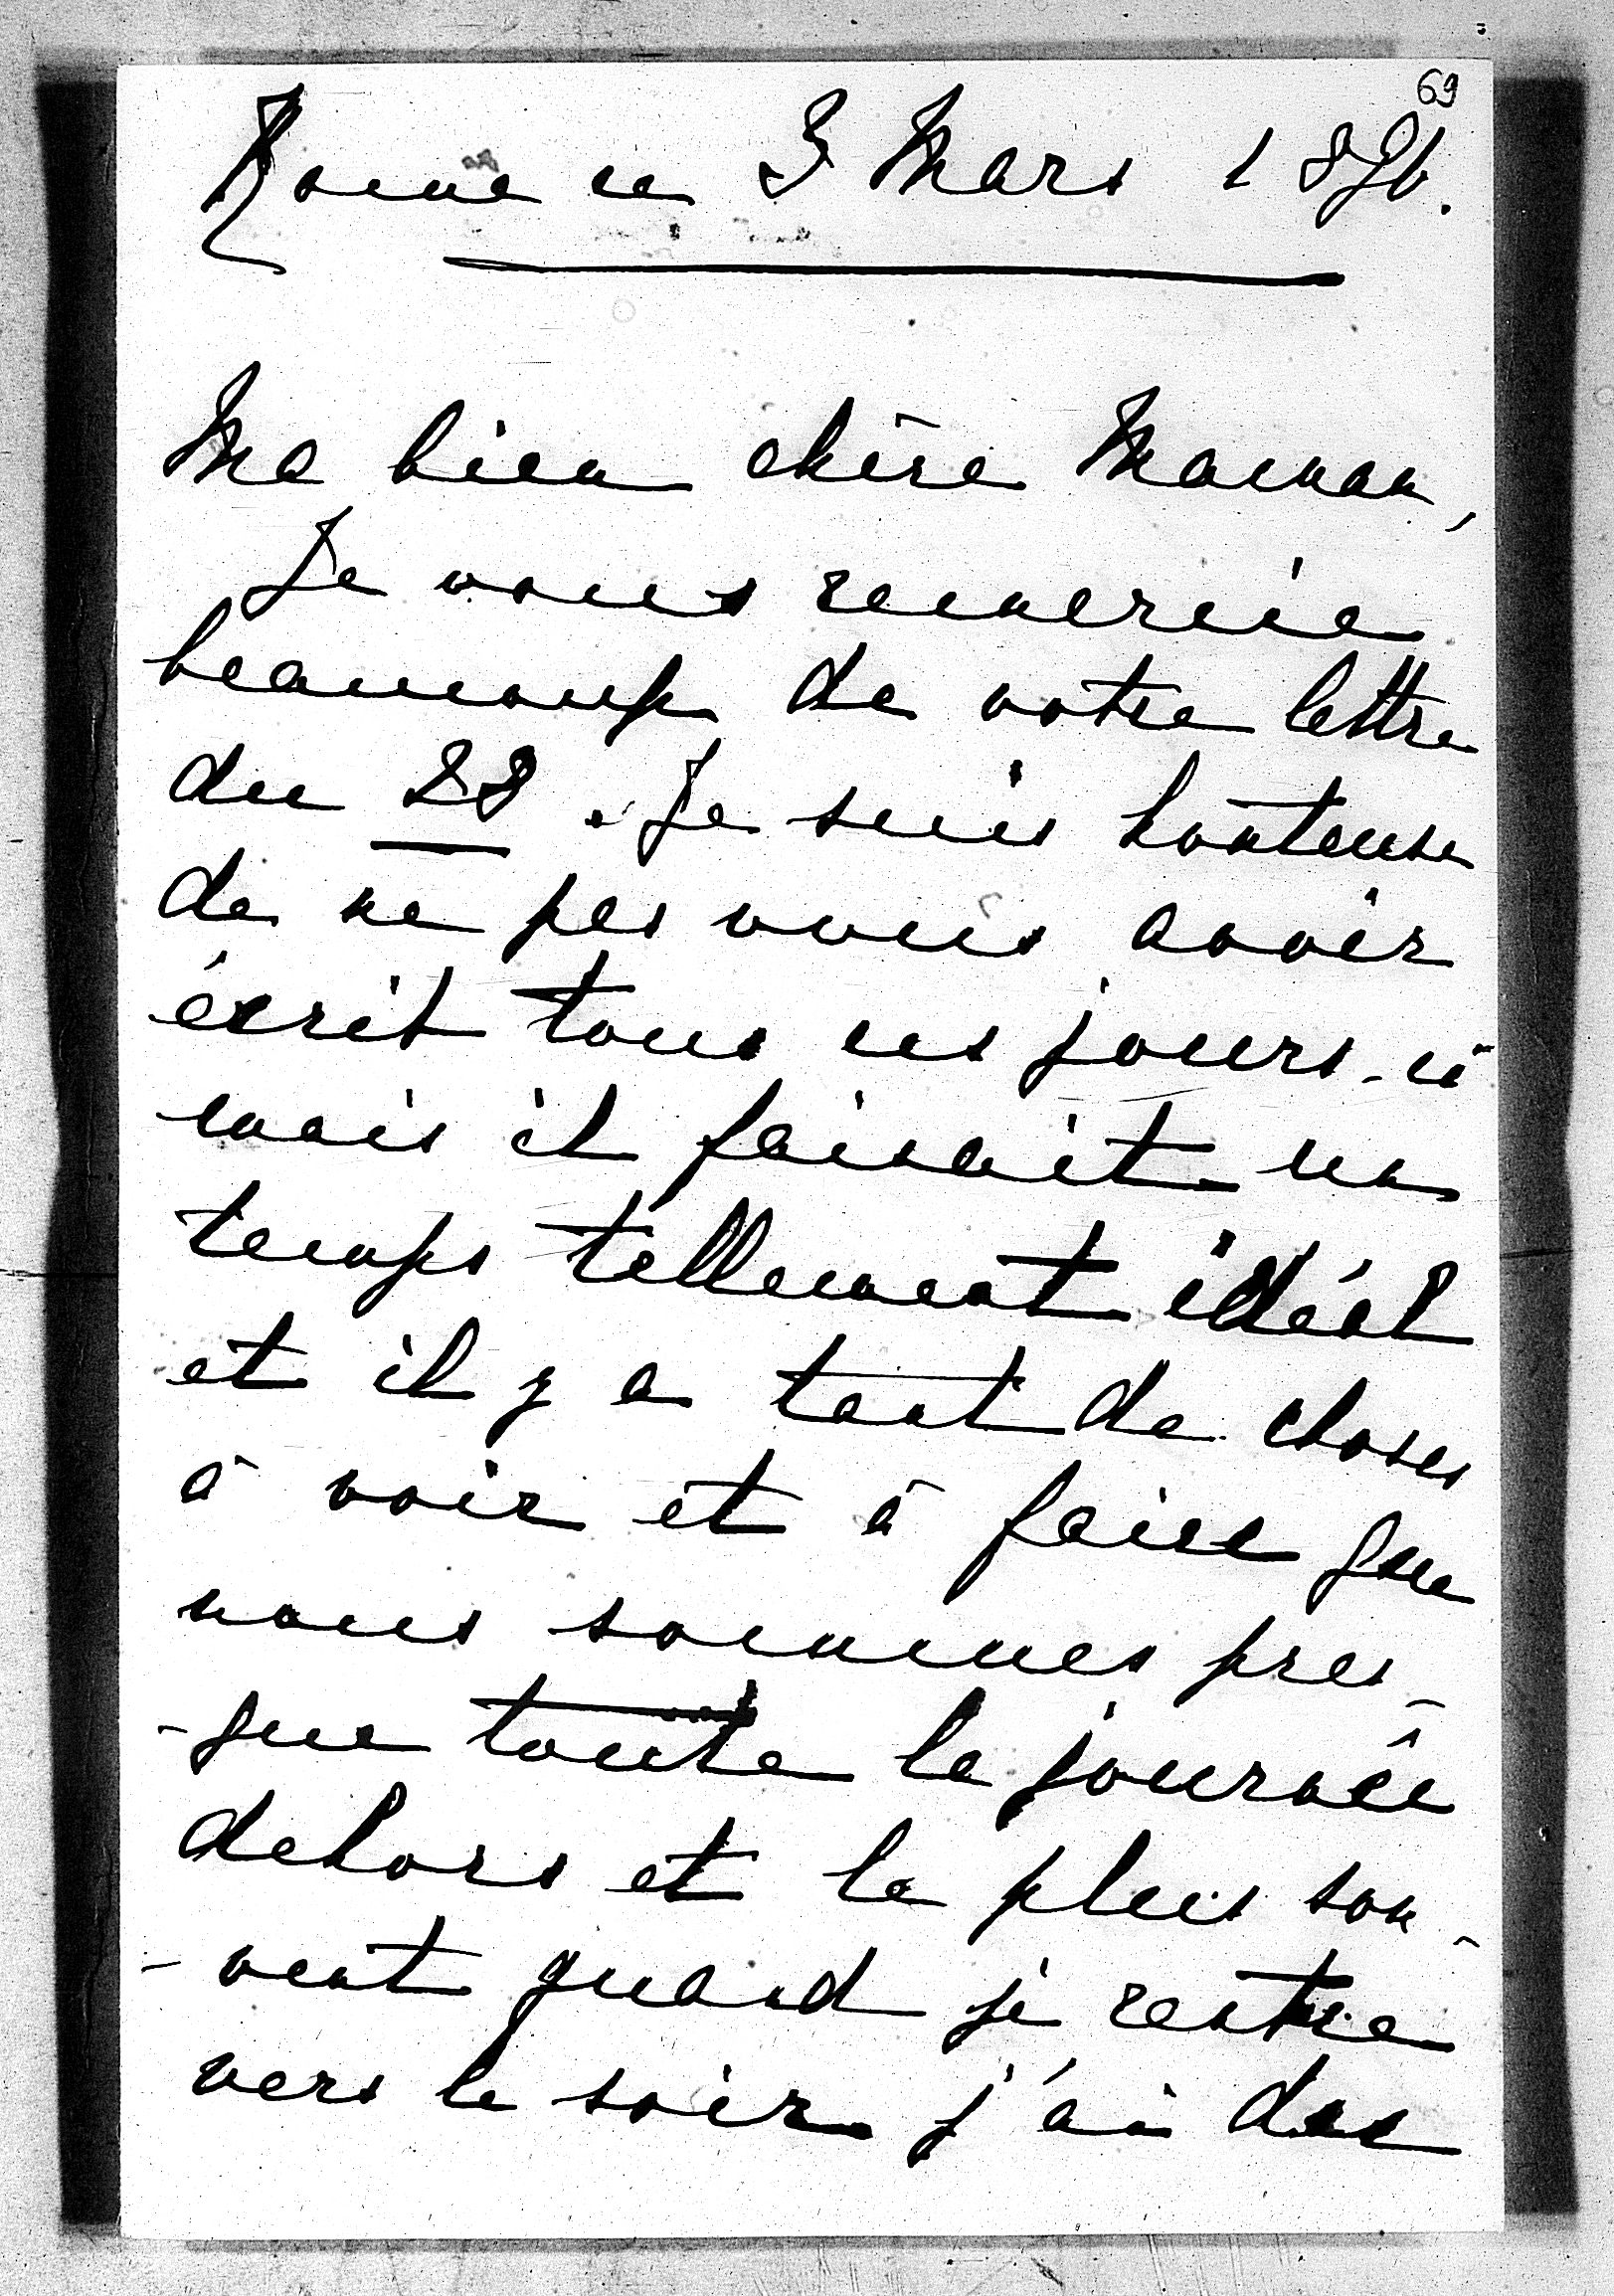 69
Rome ce 3 Mars 1896.
Ma bien chère Maman,
Je vous remercie
beaucoup de votre lettre
du 28. Je suis honteuse
de ne pas vous avoir
écrit tous ces jours-ci
mais il faisait un
temps tellement idéal
et il y a tant de choses
à voir et à faire que
nous sommes pres-
-que toute la journée
dehors et le plus sou-
-vent quand je rentre
vers le soir j'ai des